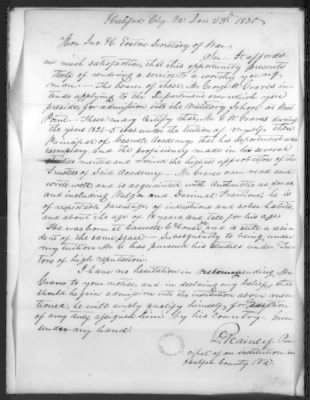 Halifax Cty Va. Jan 23d 183
Hon. Jno. H. Eaton Secretary of War,
Sir. It affords
me much satisfaction that this opportunity presents
itself of rendering a service to a worthy young
man. The bearer of these Mr. George W. Graves in-
tends applying to the Department over which you
preside, for admission into the Military School at West
Point. These may certify that Mr. G W Graves during
the years 182 was under the tuition of myself then
Principal of Academy, that his deportment was
exemplary and the proficiency made in his several
studies merited and received the highest approbation of the
Trustees of said Academy. Mr. Graves can read and
write well, and is acquainted with Arithmetic as far as,
and including Vulgar and Decimal Fractions; he is
of respectable parentage, of industrious and sober habits,
and about the age of 18 years, and tall for his age:
He was born at and is still a resi-
dent of the same place. Subsequently to being under
my tuition Mr. G. has pursued his studies under Tu-
tors of high reputation.
I have no hesitation in recommending Mr.
Graves to your notice, and in declaring my belief that
should he gain admission into the institution above men-
tioned, he will amply qualify himself for
of any duty assigned him by his country. Given
under my hand
P. Rainey Prin-
cipal of an institution in
Halifax County Va.